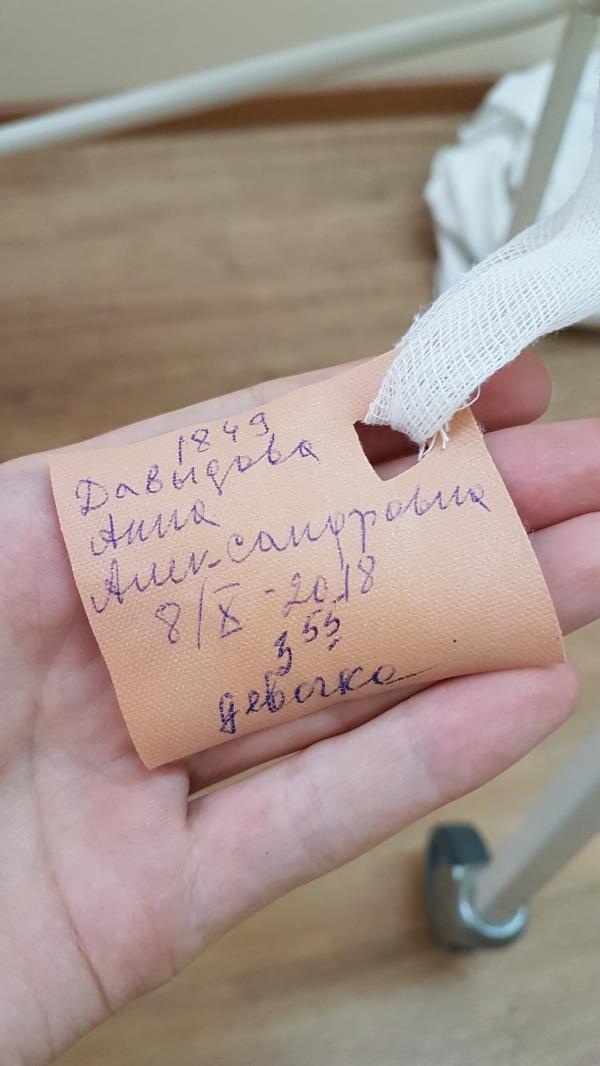 1849
Давыдова
Анна
Александровна
8/X - 2018
3 55
девочка